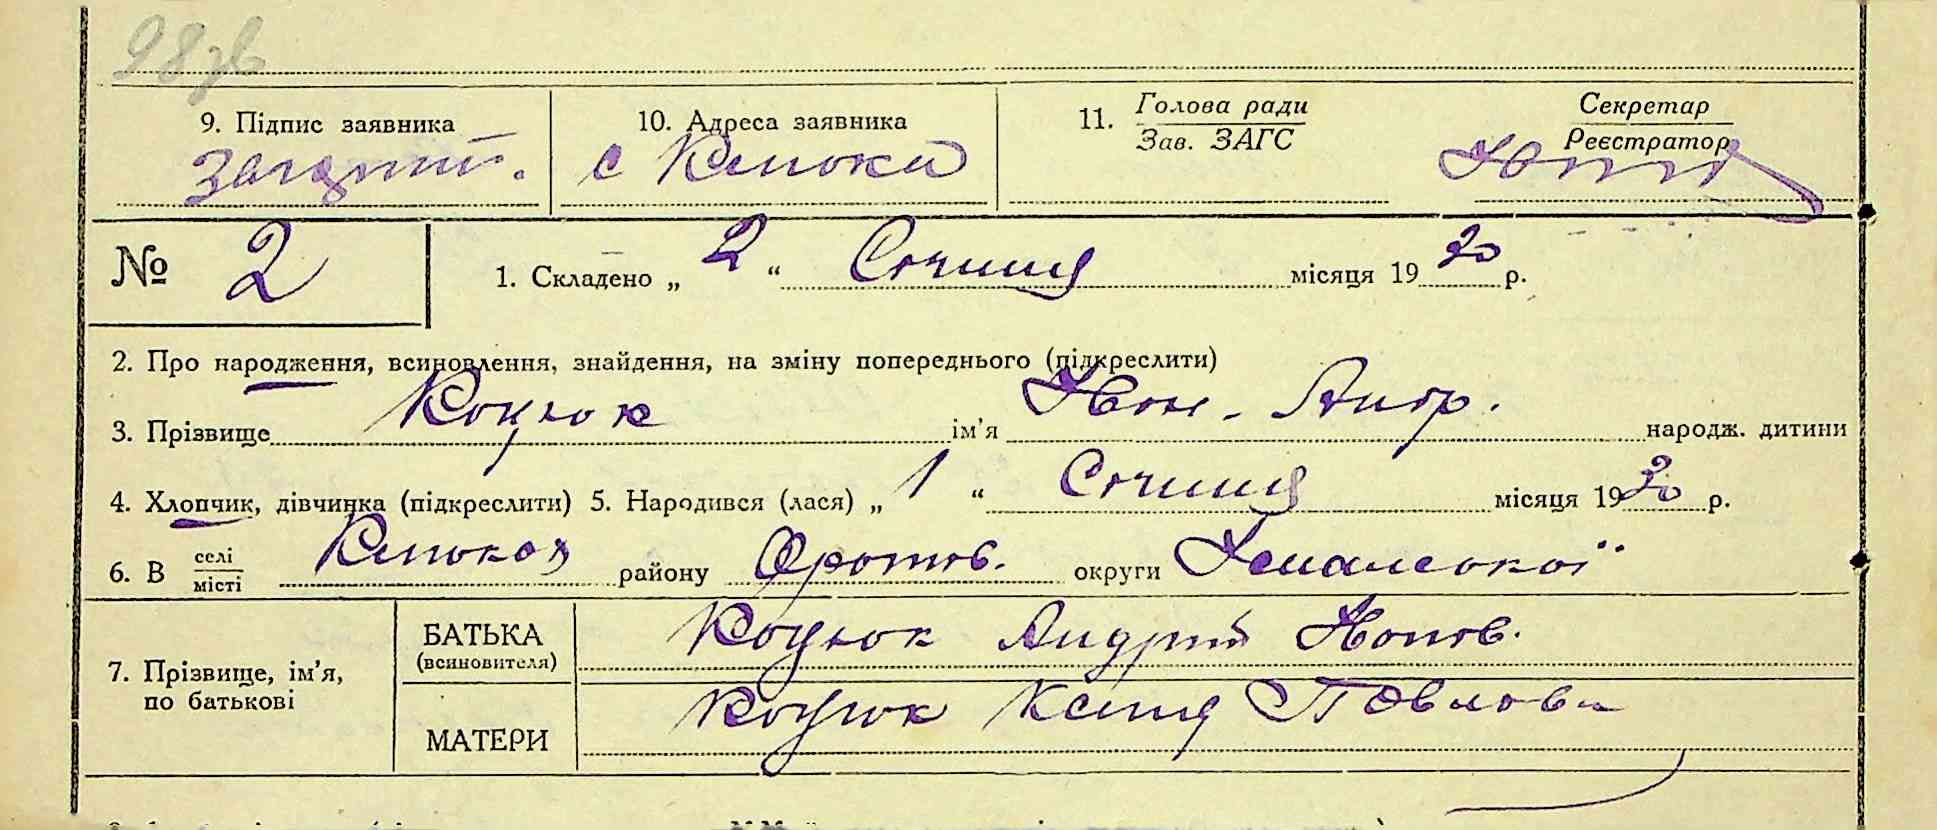 98зв
9. Підпис заявника 10. Адреса заявника 11. Голова ради Секретар
Зав. ЗАГС Реєстратор
с Клюки
№ 2 1. Складено „ 2 “ Січння місяця 1930 р.
2. Про народження, всиновлення, знайдення, на зміну попереднього (підкреслити)
3. Прізвище Коцюк ім'я Іван. Андр. народж. дитини
4. Хлопчик, дівчинка (підкреслити) 5. Народився (лася) „ 1 “ Січння місяця 1930 р.
6. В селі Клюках району округи
місті
БАТЬКА Коцюк Андрій
(всиновителя)
7. Прізвище, ім'я,
по батькові
МАТЕРИ Коцюк Ксеня Павлов